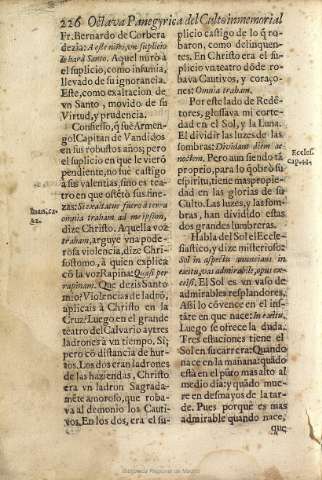 226 Octava Panegyrica del Culto inmemorial
Fr. Bernardo de Corbera
dezia: A este niño, un suplicio
de hará Santo. Aquel miró a
el suplicio, como infamia,
llevado de su ignorancia.
Este, como exaltacion de
vn Santo, movido de su
Virtud, y prudencia.
Confiesso, q̃ fuè Armen-
gol Capitan de Vandidos
en sus robustos años; pero
el suplicio en que le vierõ
pendiente, no fue castigo
à sus valentias, sino es tea-
tro en que ostétò sus fine-
zas: Si exaltatus fuero à terra
omnia traham ad me ipsum,
dize Christo. Aquella voz
traham, arguye vna pode-
rosa violencia, dize Chri-
sostomo, à quien explica
có la voz Rapina: Quasi per
rapinam. Que dezis Santo
mio? Violencias de ladrõ,
aplicais à Christo en la
Cruz? Luego en el grande
teatro del Calvario ay tres
ladrones à vn tiempo. Si;
pero có distancia de hur-
tos. Los dos eran ladrones
de las haziendas, Christo
era vn ladron Sagrada-
méte amoroso, que roba-
va al demonio los Cauti-
vos. En los dos, era el su-
Ioan, ca.
plicio castigo de lo q̃ ro-
baron, como delinquen-
tes. En Christo era el su-
plicio vn teatro dóde ro-
bava Cautivos, y coraço-
nes: Omnia traham.
Por este lado de Redẽ-
tores, glossava mi corte-
dad en el Sol, y la Luna.
El dividir las luzes de las
sombras: Dividant diem ac
noctem. Pero aun siendo tã
proprio, para lo q̃ obrò su
espiritu, tiene mas propie-
dad en las glorias de su
Culto. Las luzes, y las som-
bras, han dividido estas
dos grandes lumbreras.
Habla del Sol el Eccle-
siastico, y dize mysterioso:
Sol in aspectu annuntians in
exitu, vas admirabile, opus ex-
celsi. El Sol es vn vaso de
admirables resplandores.
Assi lo cóvence en el ins-
tante en que nace: In exitu.
Luego se ofrece la duda.
Tres estaciones tiene el
Sol en su carrera: Quando
nace en la mañana; quãdo
està en el pũto mas alto al
medio dia; y quãdo mue-
re en desmayos de la tar-
de. Pues porquè es mas
admirable quando nace,
que
Eccles.
Biblioteca Regional de Madrid